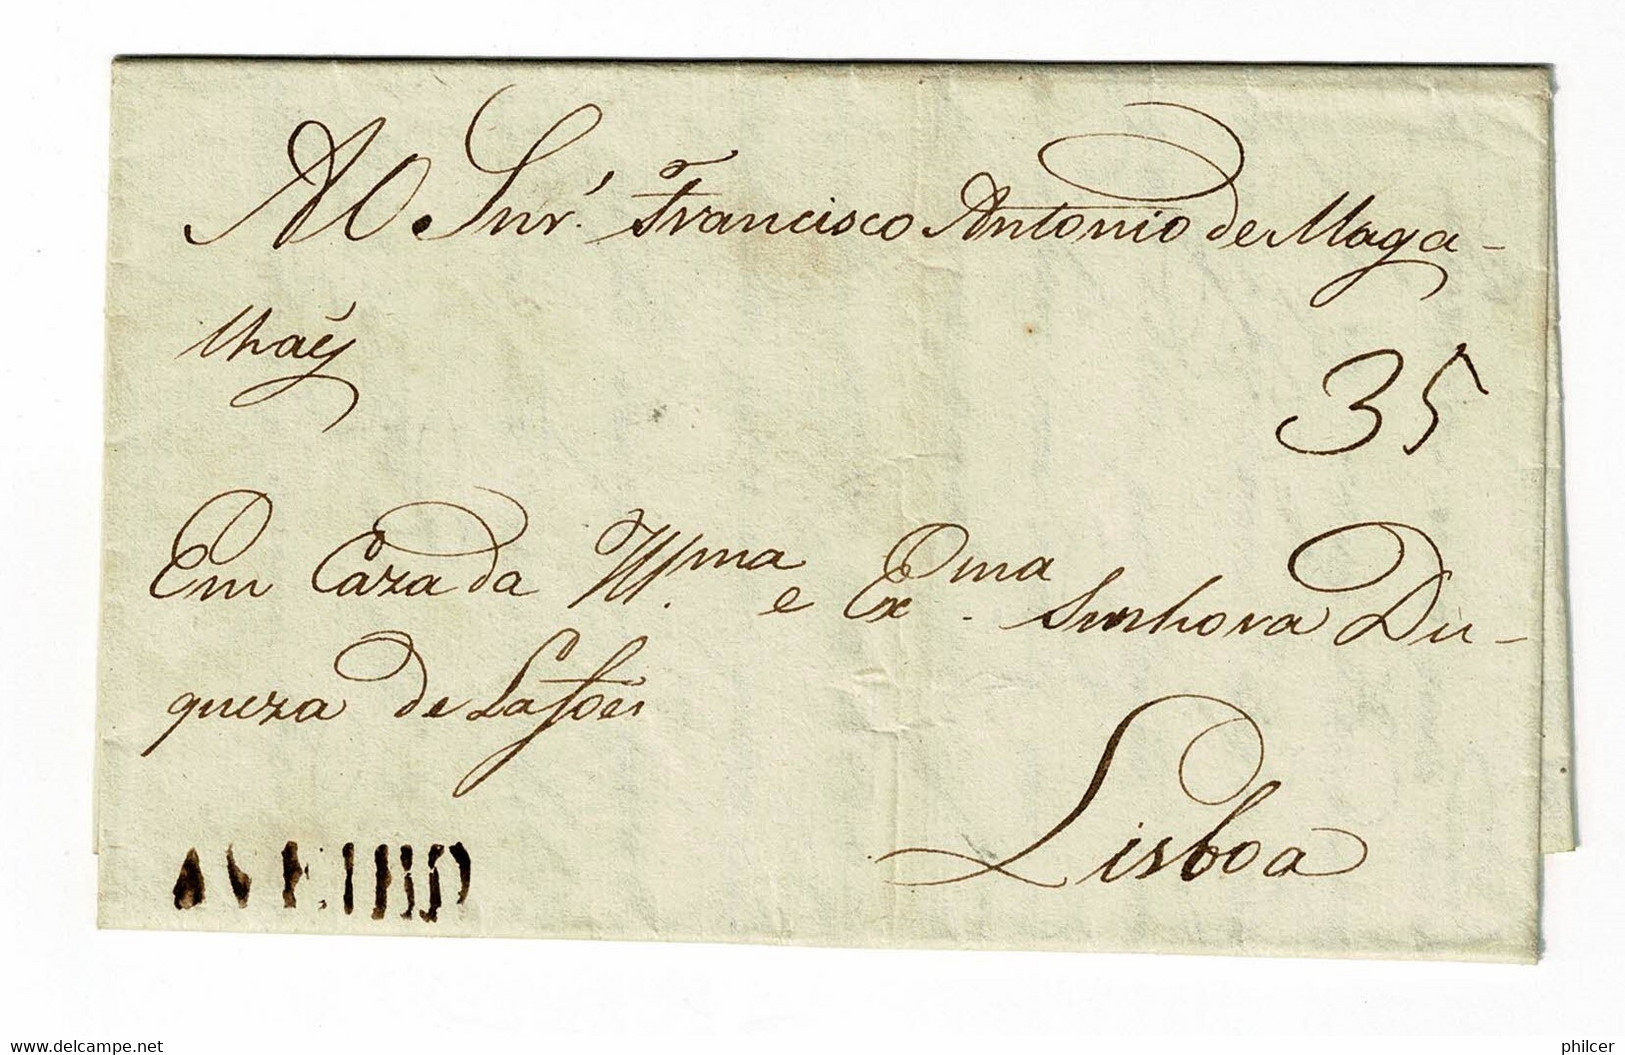 AO Snr. Francisco Antonio de Maga-
lhaẽs
35
Em Caza da Ill.ma e Ex.ma Senhora Du-
queza de Lafoẽs
Lisboa
AVEIRO
www.delcampe.net
philcer